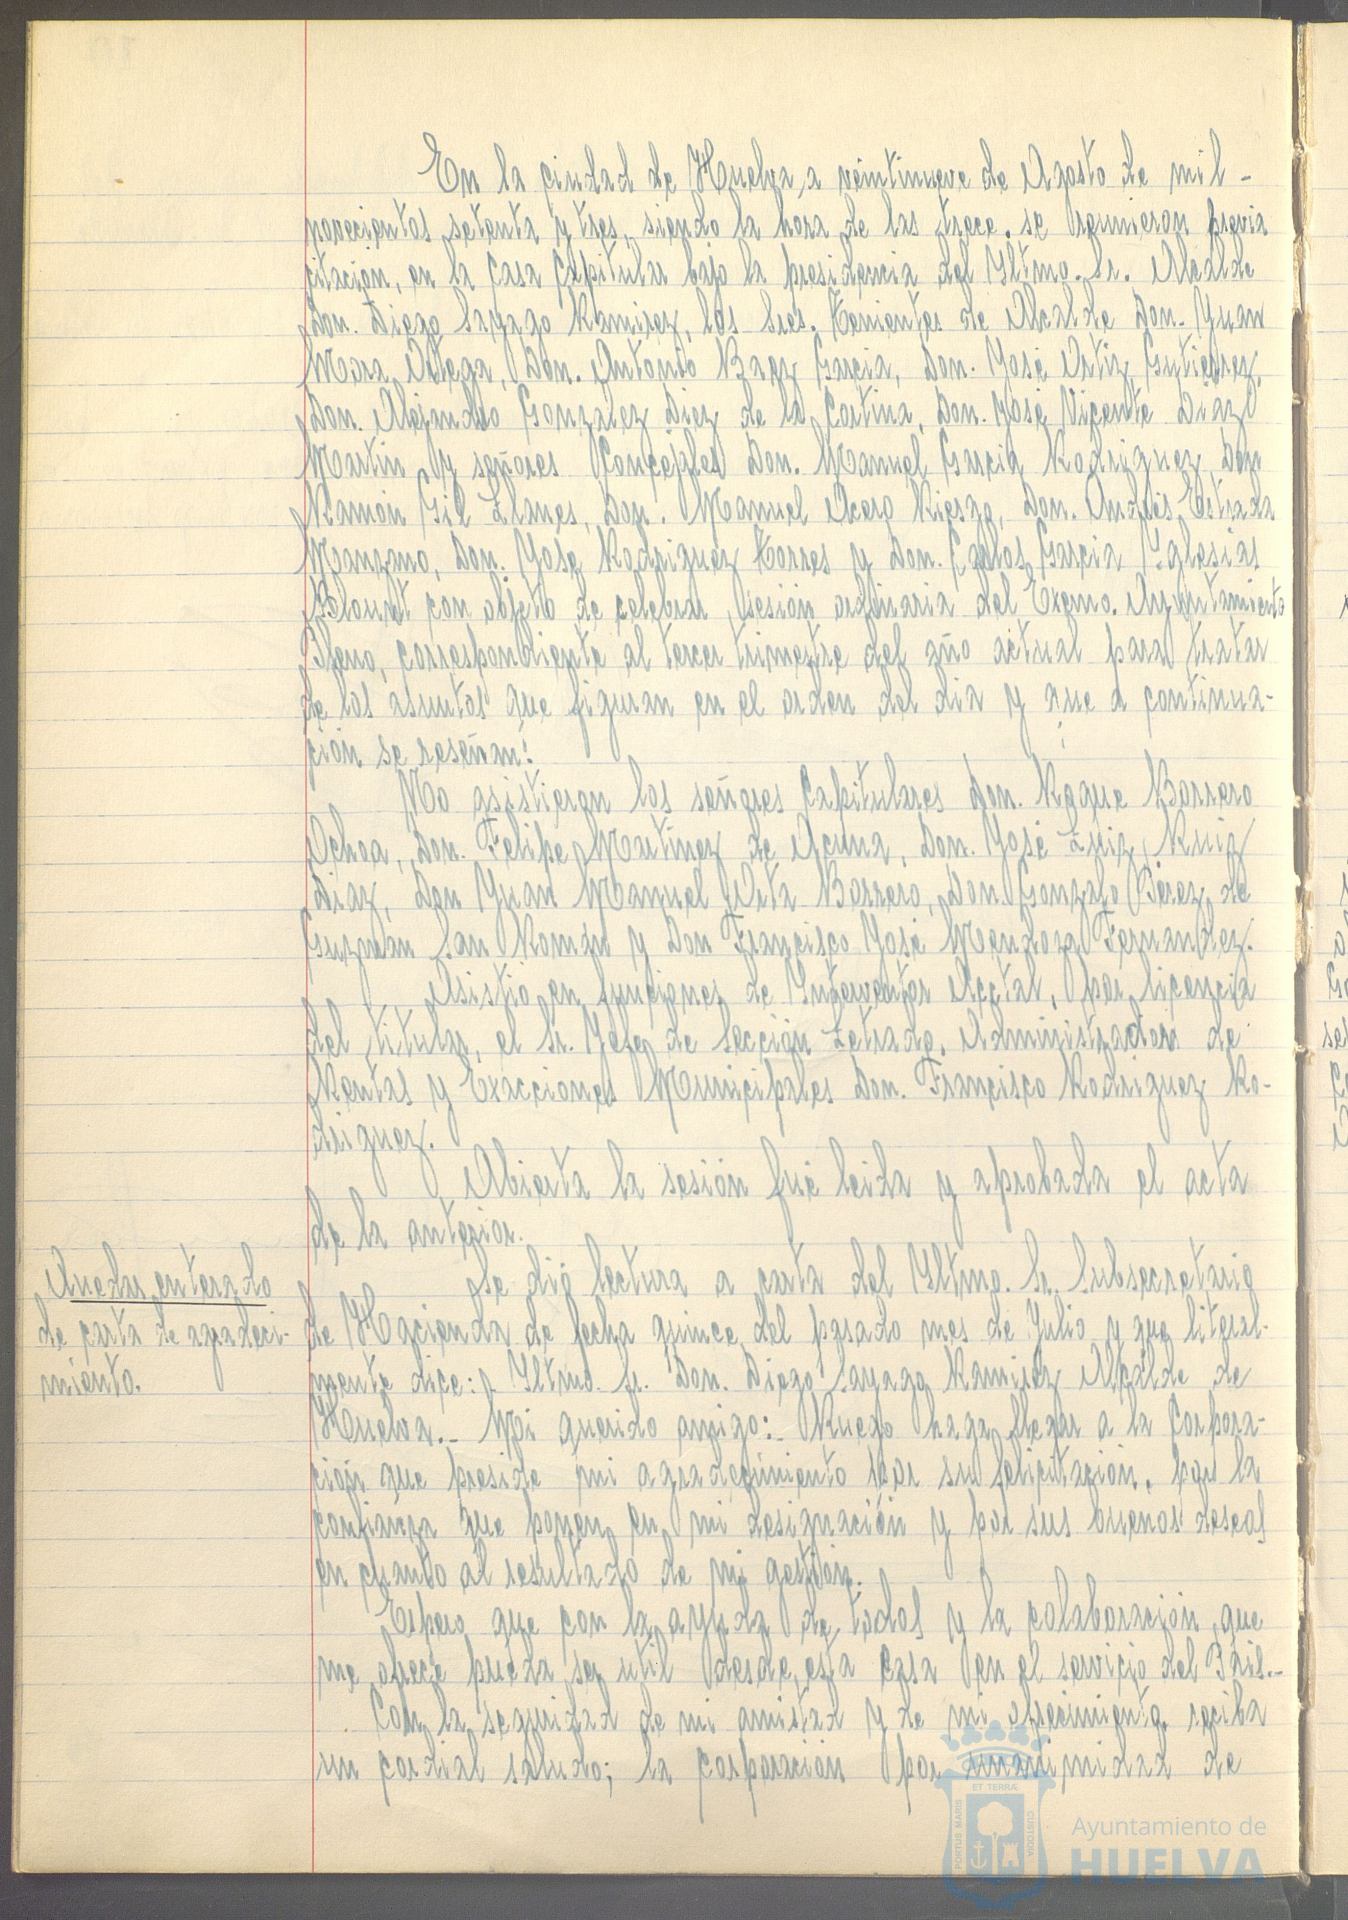 En la ciudad de Huelva, a veintinueve de Agosto de mil -
novecientos setenta y tres, siendo la hora de las trece, se reunieron previa
citación, en la Casa Capitular bajo la presidencia del Yltmo. Sr. Alcalde
Don. Diego Sayago Ramirez, los Sres. Tenientes de Alcalde Don. Juan
Mora Ortega, Don. Antonio Baez Garcia, Don. José Ortiz Gutierrez,
Don. Alejandro Gonzalez Diez de la Cortina, Don. José Vicente Diaz
Martin y señores Concejales Don. Manuel Garcia Rodriguez, Don
Ramón Gil Llanes, Don. Manuel Acero Riesgo, Don. Andrés Estrada
Manzano, Don. José Rodriguez Torres y Don. Carlos Garcia Yglesias
Blount con objeto de celebrar sesión ordinaria del Excmo. Ayuntamiento
Pleno, correspondiente al tercer trimestre del año actual para tratar
de los asuntos que figuran en el orden del dia y que a continua-
ción se reseñan:
No asistieron los señores Capitulares Don. Roque Barrero
Ochoa, Don. Felipe Martinez de Acuna, Don. José Luiz Ruiz
Diaz, Don Juan Manuel Orta Barrero, Don Gonzalo Pérez de
Guzman San Román y Don Francisco José Mendoza Fernandez.
Asistió en funciones de Ynterventor Acctal, por licencia
del titular, el Sr. Jefe de Sección Letrado, Administración de
Rentas y Exacciones Municipales Don. Francisco Rodriguez Ro-
driguez.
Abierta la sesión fué leida y aprobada el acta
de la anterior.
Quedar enterado
de carta de agradeci-
miento.
Se dió lectura a carta del Yltmo. Sr. Subsecretario
de Hacienda de fecha quince del pasado mes de Julio y que literal-
mente dice: Yltmo. Sr. Don. Diego Sayago Ramirez Alcalde de
Huelva.- Mi querido amigo:- Ruego haga llegar a la Corpora-
ción que preside mi agradecimiento por su felicitación, por la
confianza que ponen en mi designación y por sus buenos deseos
en cuanto al resultado de mi gestión.
Espero que con la ayuda de todos y la colaboración que
me ofrece pueda ser util desde esta casa en el servicio del Pais.-
Con la seguridad de mi amistad y de mi ofrecimiento, reciba
un cordial saludo; la corporación por unanimidad de
ET TERRÆ
PORTUS MARIS
CUSTODIA
Ayuntamiento de
HUELVA